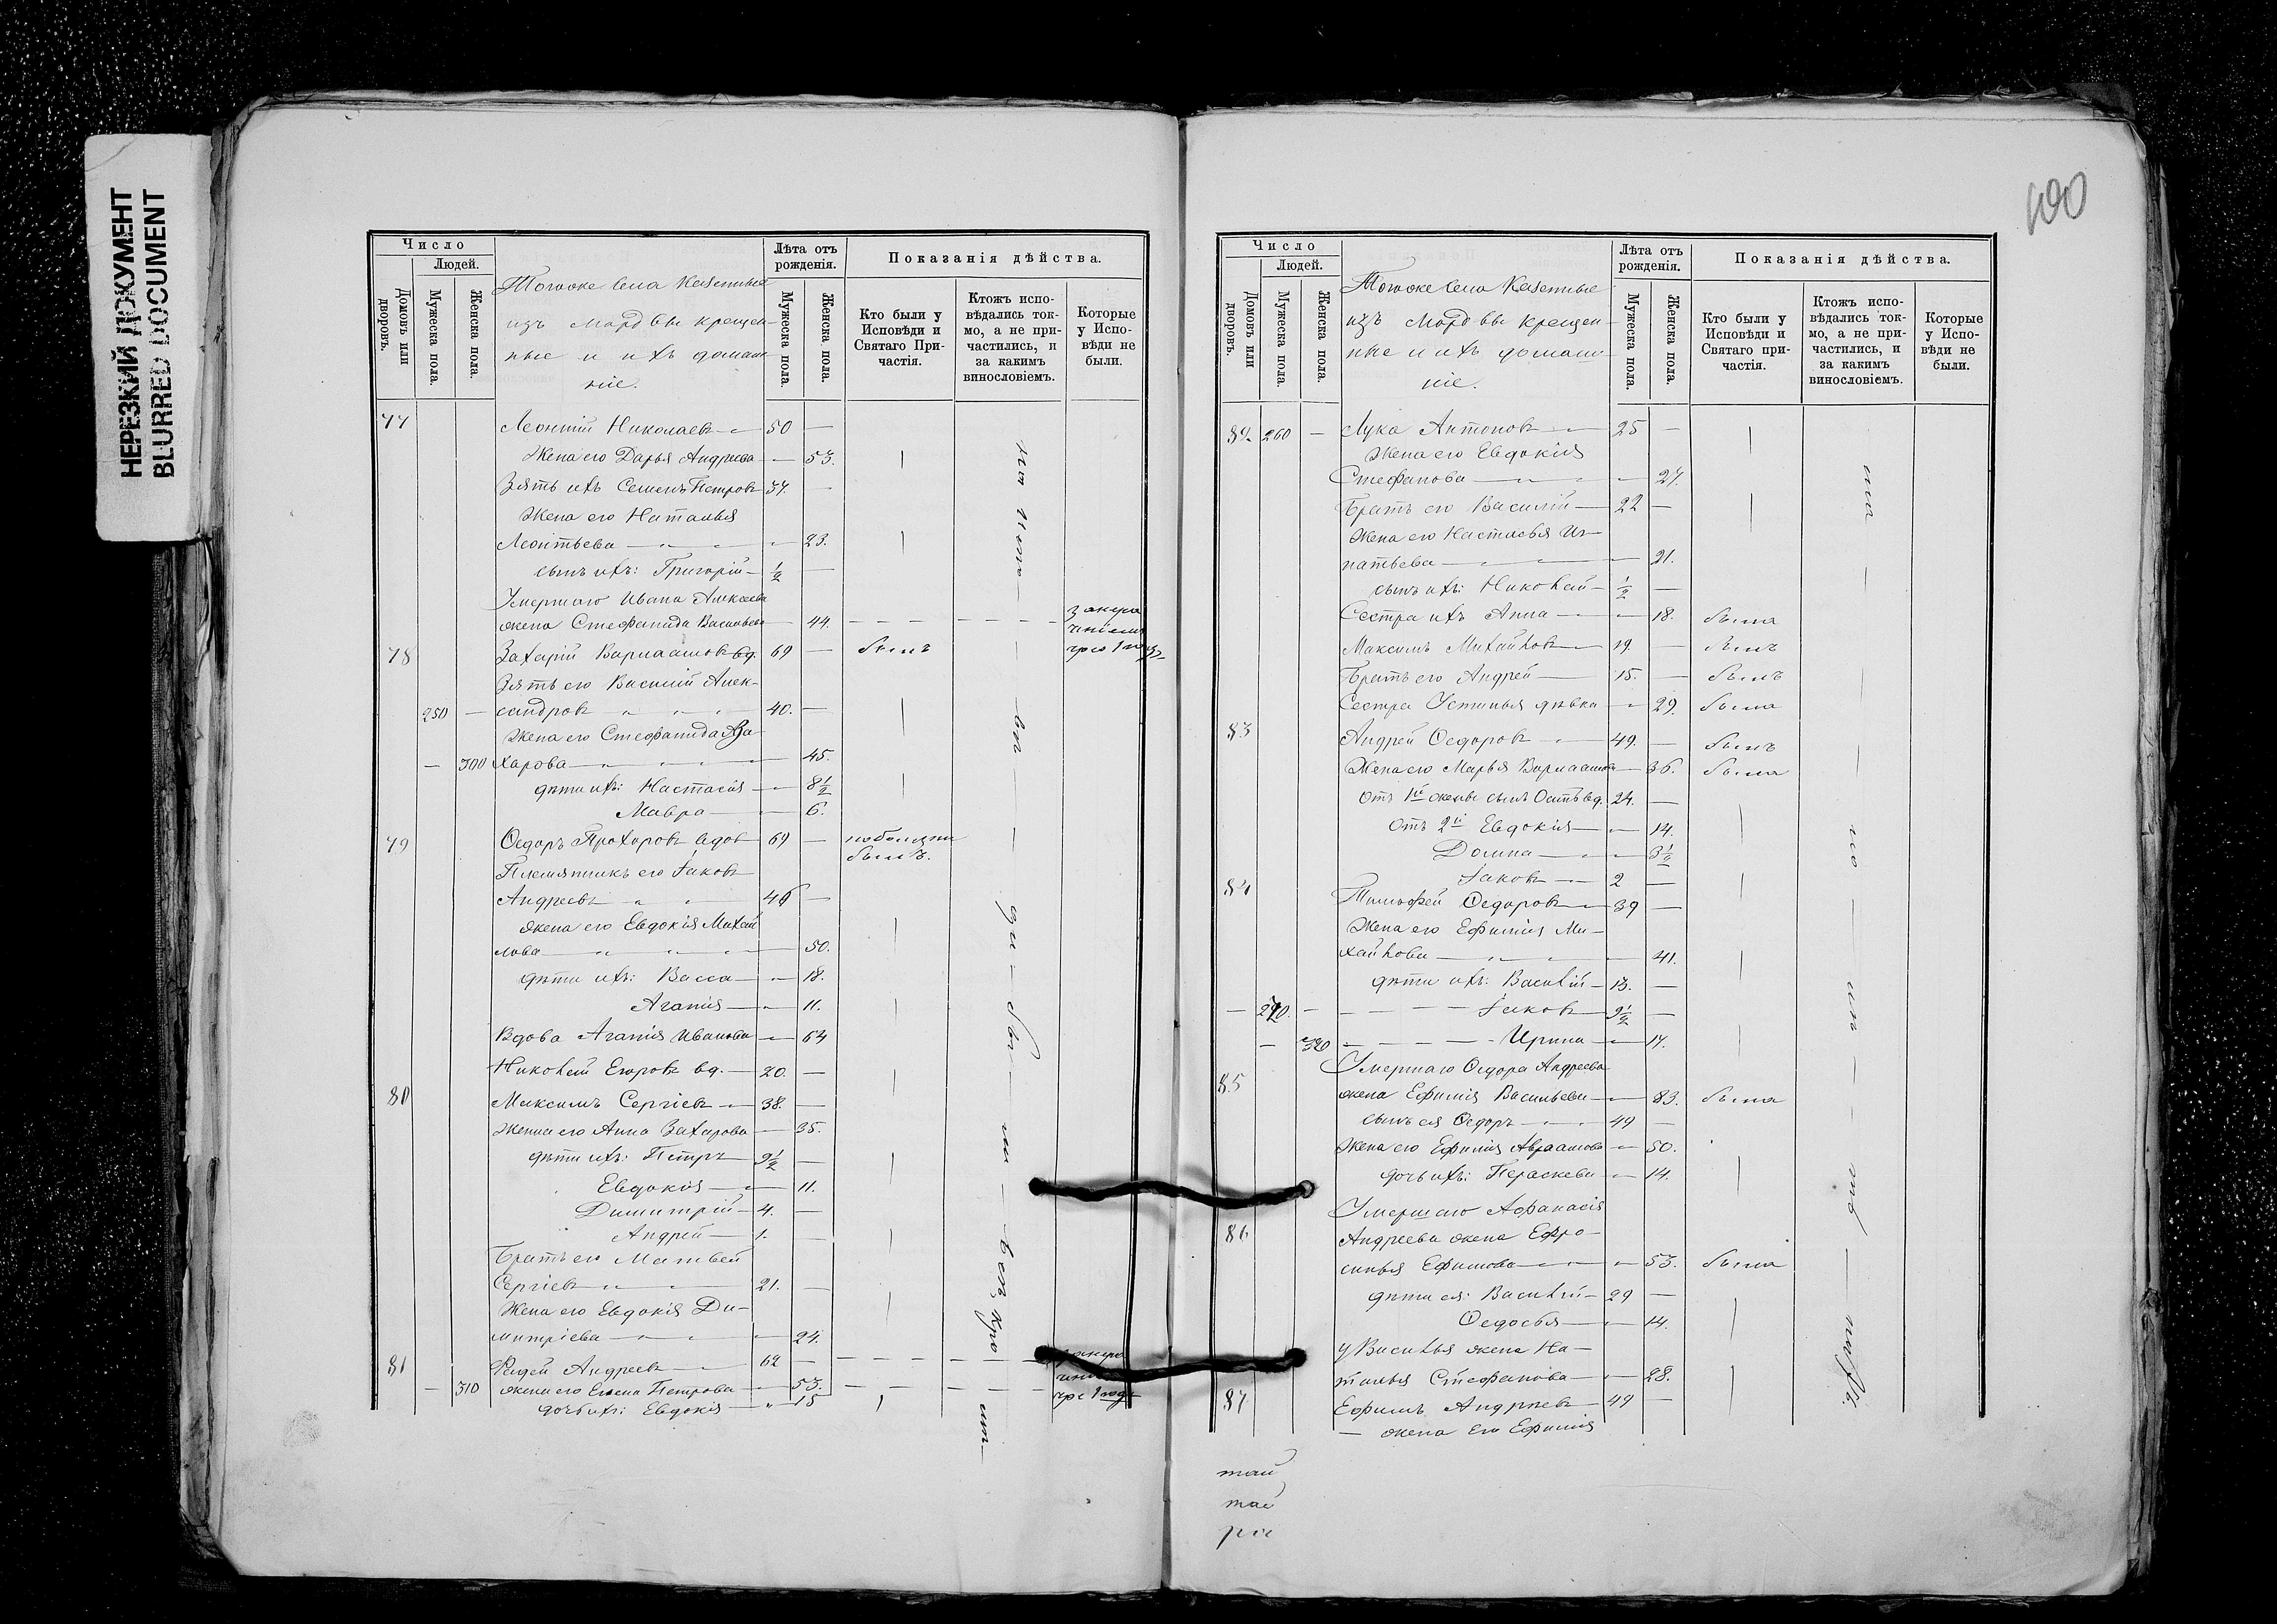 НЕРЕЗКИЙ ДОКУМЕНТ
BLURRED DOCUMENT
Число
Людей.
Домовъ или дворовъ.
Мужеска пола.
Женска пола.
Тогоже села Казенные
изъ мордвы крещен-
ные и ихъ домаш-
ніе.
Лѣта отъ рожденія.
Мужеска пола.
Женска пола.
Показанія дѣйства.
Кто были у Исповѣди и Святаго Причастія.
Ктожъ исповѣдались токмо, а не причастились, и за какимъ винословіемъ.
Которые у Исповѣди не были.
77 Леонтій Николаевъ 50 —
Жена его Дарья Андреева — 53.
Зять ихъ Семенъ Петровъ 34. —
Жена его Наталья
Леонтьева — 23.
сынъ ихъ: Григорій 1/2 —
Умершаго Ивана Алексѣева
жена Стефанида Васильева — 44.
78 Захарій Варлаамовъ вд. 69 — былъ
Зять его Василій Алек-
250 — сандровъ 40. —
Жена его Стефанида За-
— 300 харова — 45.
дѣти ихъ: Настасія — 8 1/2
Мавра — 6.
79 Ѳедоръ Прохоровъ вдов 69 — по болѣзни
былъ.
Племянникъ его Іаковъ
Андреевъ 46 —
жена его Евдокія Михай
лова — 50.
дѣти ихъ: Васса — 18.
Агапія — 11.
Вдова Агапія Иванова — 64
Николай Егоровъ вд. — 20. —
80 Максимъ Сергіевъ — 38. —
Женна его Анна Захарова — 35.
дѣти ихъ: Петръ 9 1/2 —
Евдокія — 11.
Димитрій — 4. —
Андрей — 1. —
Братъ его Матвей
Сергіевъ 21. —
Жена его Евдокія Ди-
митріева — 24.
81 Фадей Андреевъ 62 —
— 310 жена его Елена Петрова — 53.
дочь ихъ: Евдокія — 15
100
Число
Людей.
Домовъ или дворовъ.
Мужеска пола.
Женска пола.
Тогоже села Казенные
изъ мордвы крещен-
ные и ихъ домаш-
ніе.
Лѣта отъ рожденія.
Мужеска пола.
Женска пола.
Показанія дѣйства.
Кто были у Исповѣди и Святаго причастія.
Ктожъ исповѣдались токмо, а не причастились, и за какимъ винословіемъ.
Которые у Исповѣди не были.
82 260 — Лука Антоновъ 25 —
Жена его Евдокія
Стефанова — 27.
Братъ его Василій — 22 —
Жена его Настасья Иг-
натьева — 21.
сынъ ихъ: Николай 1/2 —
Сестра ихъ Анна — 18. была
Максимъ Михайловъ 19. — былъ
Братъ его Андрей — 15. — былъ
Сестра Устинья дѣвка — 29. была
83 Андрей Ѳедоровъ 49. — былъ
Жена его Марья Варлаамова — 36. была
Отъ 1й жены сынъ Осипъ вд. 24. —
Отъ 2й Евдокія — 14.
Домна — 3 1/2
Іаковъ — 2 —
84 Тимофей Ѳедоровъ 39 —
Жена его Ефимія Ми-
хайлова — 41.
дѣти ихъ: Василій — 13. —
— 270. — Іаковъ 9 1/2 —
— 320 — Ирина — 17.
85 Умершаго Ѳедора Андреева
жена Ефимія Васильева — 83. была
сынъ ея Ѳедоръ 49 —
Жена его Ефимія Авраамова — 50.
дочь ихъ: Параскева — 14.
86 Умершаго Афанасія
Андреева жена Ефро-
синья Ефимова — 53. была
дѣти ея: Василій — 29 —
Ѳедосья — 14.
у Василья жена На-
талья Стефанова — 28.
87 Ефимъ Андреевъ — 49 —
— жена его Ефимія